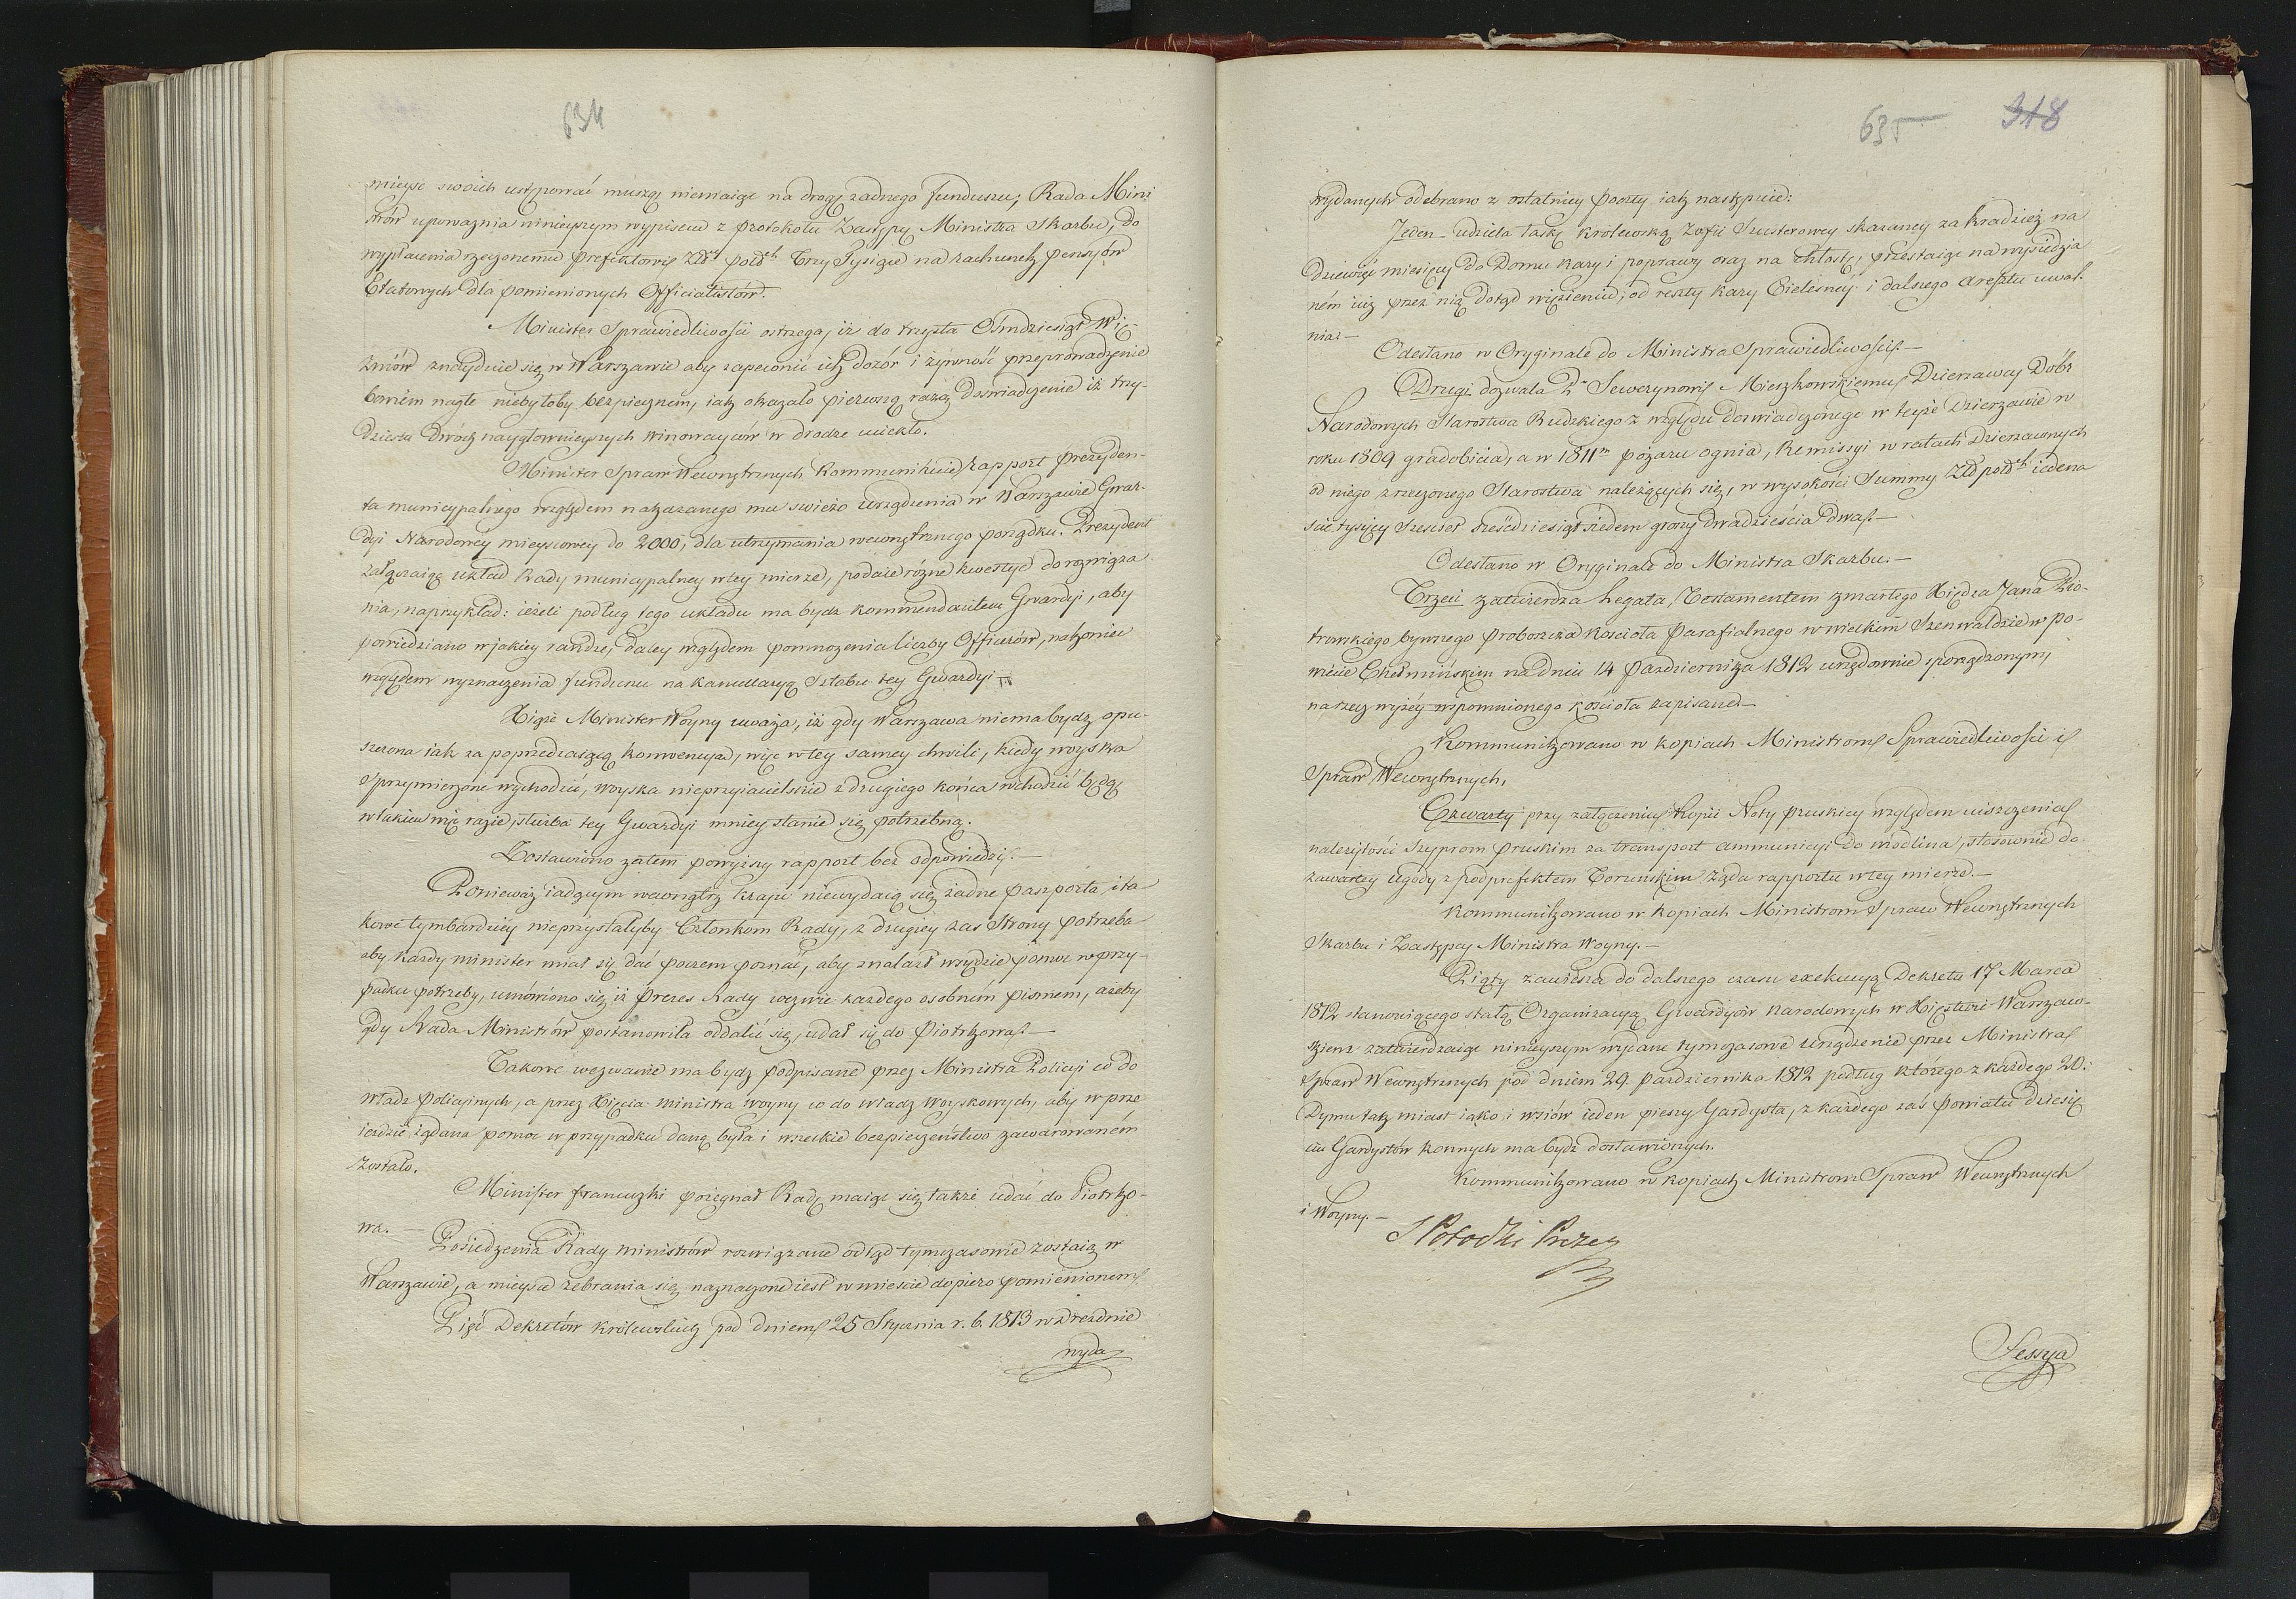 634
mieysc swoich ustępować muszą niemaiąc na drogę żadnego funduszu; Rada Mini
strów upoważnia ninieyszym wypisem z protokołu Zastępcę Ministra Skarbu, do
wypłacenia rzeczonemu Prefektowi Złł polsch Trzy Tysiące na rachunek pensyów
Etatowych dla pomienionych Officialistów.
Minister Sprawiedliwości ostrzega, iż do trzysta Ośmdziesiąt Wię
źniów znayduie się w Warszawie aby zapewnić ich dozór i żywność przeprowadzenie
bowiem nagłe niebyłoby bezpiecznem, iak okazało pierwszą razą doświadczenie iż trzy-
dziestu dwóch naygłownieyszych winowayców w drodze uciekło.
Minister Spraw Wewnętrznych kommunikuie rapport Prezyden-
ta municypalnego względem nakazanego mu świeżo urządzenia w Warszawie Gwar-
dyi Narodowey mieyscowey do 2000, dla utrzymania wewnętrznego porządku. Prezydent
załączaiąc układ Rady municypalney w tey mierze, podaie różne kwestye do rozwiąza
nia, naprzykład: ieżeli podług tego układu ma bydź kommendantem Gwardyi, aby
powiedziano w jakiey randze, daley względem pomnożenia liczby Officerów, nakoniec
względem wyznaczenia funduszu na kancellaryą Sztabu tey Gwardyi
Xiąże Minister Woyny uważa, iż gdy Warszawa niema bydź opu-
szczona iak za poprzedzaiącą konwencyą, więc w tey samey chwili, kiedy woyska
sprzymierzone wychodzić, woyska nieprzyiacielskie z drugiego końca wchodzić będą
w takim więc razie, służba tey Gwardyi mniey stanie się potrzebną.
Zostawiono zatem powyższy rapport bez odpowiedzi.—
Ponieważ iadącym wewnątrz kraju niewydaią się żadne paszporta i ta
kowe tymbardziey nieprzystałyby Członkom Rady, z drugiey zaś Strony potrzeba
aby każdy minister miał się dać poczem poznać, aby znalazł wszędzie pomoc w przy-
padku potrzeby, umówiono się iż Prezes Rady wezwie każdego osobnem pismem, ażeby
gdy Rada Ministrów postanowiła oddalić się, udał się do Piotrkowa.—
Takowe wezwanie ma bydź podpisane przez Ministra Policyi co do
władz policyinych, a przez Xięcia ministra woyny co do władz woyskowych, aby w prze
ieździe żądana pomoc w przypadku daną była i wszelkie bezpieczeństwo zawarowanem
zostało.
Minister francuzki pożegnał Radę maiąc się także udać do Piotrko-
wa.—
Posiedzenia Rady ministrów rozwiązane odtąd tymczasowie zostaią w
Warszawie, a mieysce zebrania się naznaczone iest w mieście dopiero pomienionem
Pięć Dekretów królewskich pod dniem 25 Stycznia r. b. 1813 w Dreznie
wyda
635
318
wydanych odebrano z ostatniey poczty iak następuie:
Jeden udziela łaskę królewską Zofii Szusterowey skazaney za kradzież na
dziewięć miesięcy do Domu kary i poprawy oraz na chłostę, przestaiąc na wysiedzia
ném iuż przez nią dotąd więzieniu, od reszty kary Cielesney i dalszego aresztu uwal-
nia.—
Odesłano w Oryginale do Ministra Sprawiedliwości.—
Drugi dozwala P. Sewerynowi Mieszkowskiemu Dzierzawcy Dóbr
Narodowych Starostwa Rudzkiego z względu doświadczonego w teyże Dzierzawie w
roku 1809 gradobicia, a w 1811m pożaru ognia, Remissyi w ratach Dzierzawnych
od niego z rzeczonego Starostwa należących się, w wysokości Summy Złł polsch iedena
ście tysięcy Sześćset sześćdziesiąt siedem groszy dwadzieścia dwa.—
Odesłano w Oryginale do Ministra Skarbu.—
Trzeci zatwierdza Legata, Testamentem zmarłego Xiędza Jana Pio-
trowskiego bywszego Proboszcza kościoła Parafialnego w wielkim Szenwaldzie w Po-
wiecie Chełmińskim na dniu 14 Października 1812 urzędownie sporządzonym,
na rzecz wyżéy wspomnionego kościoła zapisane.—
Kommunikowano w kopiach Ministrom Sprawiedliwości i
Spraw Wewnętrznych.
Czwarty przy załączeniu kopii Noty pruskiey względem uiszczenia
należytości Szyprom pruskim za transport ammunicyi do Modlina, stosownie do
zawartey ugody z podprefektem Toruńskim żąda rapportu w tey mierze.—
Kommunikowano w kopiach Ministrom Spraw Wewnętrznych
Skarbu i Zastępcy Ministra Woyny.—
Piąty zawiesza do dalszego czasu exekucyą Dekretu 17 Marca
1812 stanowiącego stałą Organizacyą Gwardyów Narodowych w Xięstwie Warszaw-
skiem zatwierdzaiąc ninieyszym wydane tymczasowe urządzenie przez Ministra
Spraw Wewnętrznych pod dniem 29 Października 1812 podług którego z każdego 20.
Dymu tak miast iako i wsiów ieden pieszy Gardysta, z każdego zaś Powiatu dziesię
ciu Gardystów konnych ma bydź dostawionych.
Kommunikowano w kopiach Ministrom Spraw Wewnętrznych
i Woyny.—
S Potocki Prezes
Sessya